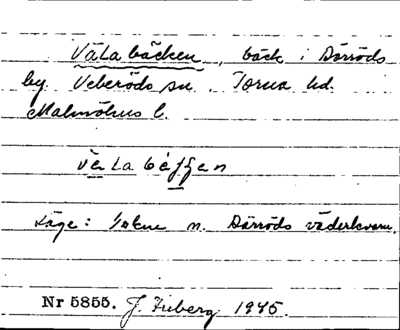 Välabäcken, bäck i Dörröds
by Veberöds sn. Torna hd.
Malmöhus l.
Läge: n. Dörröds väderkvarn.
Nr 5855. J. Friberg 1945.